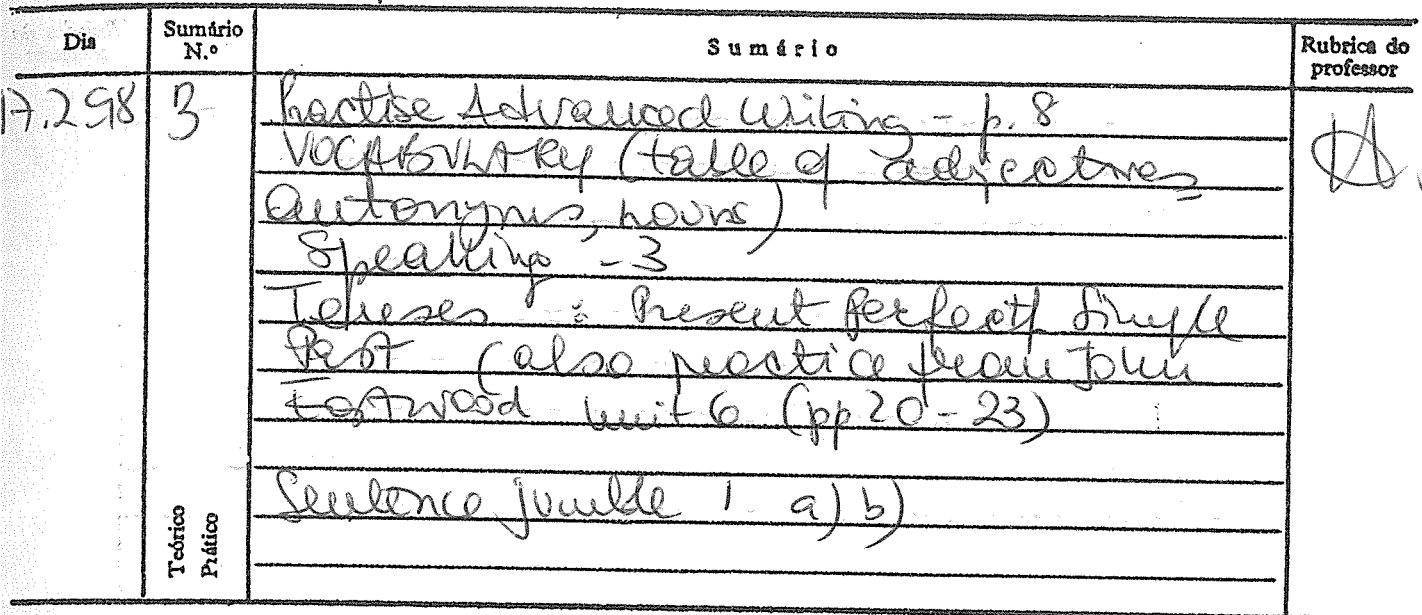 Dia Sumário N.º Sumário Rubrica do professor
17.2.98 3 Practise Advanced Writing - p. 8
VOCABULARY (table of adjectives
antonyms, nouns)
Speaking - 3
Tenses : Present Perfect / Simple
Past (also practice from John
Eastwood unit 6 (pp 20 - 23)
Sentence jumble 1 a) b)
Teórico
Prático